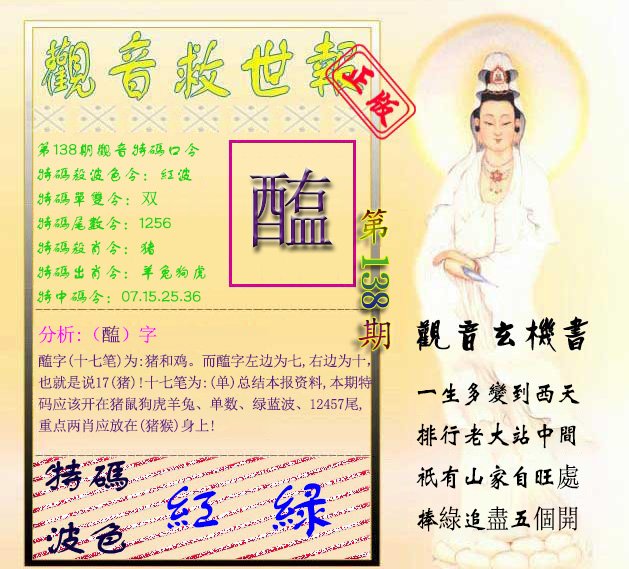 觀音救世報
正版
第138期觀音特碼口令
特碼殺波色令：紅波
特碼單雙令：双
特碼尾數令：1256
特碼殺肖令：豬
特碼出肖令：羊兔狗虎
特中碼令：07.15.25.36
醢
第138期
分析:（醢）字
醢字(十七笔)为:猪和鸡。而醢字左边为七,右边为十，
也就是说17(猪)!十七笔为:(单)总结本报资料,本期特
码应该开在猪鼠狗虎羊兔、单数、绿蓝波、12457尾,
重点两肖应放在(猪猴)身上!
特碼
波色
紅 緑
觀音玄機書
一生多變到西天
排行老大站中間
祇有山家自旺處
捧綠追盡五個開